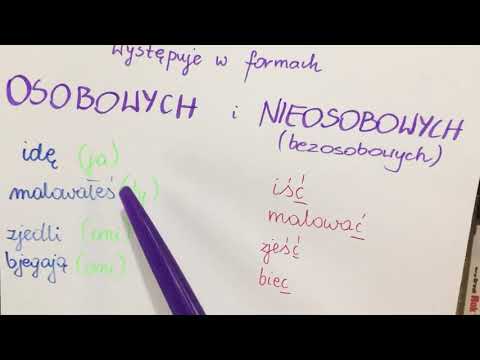 występuje w formach
OSOBOWYCH i NIEOSOBOWYCH
(bezosobowych)
idę (ja)
malowałeś
zjedli (oni)
bjegają (oni)
iść
malować
zjeść
biec